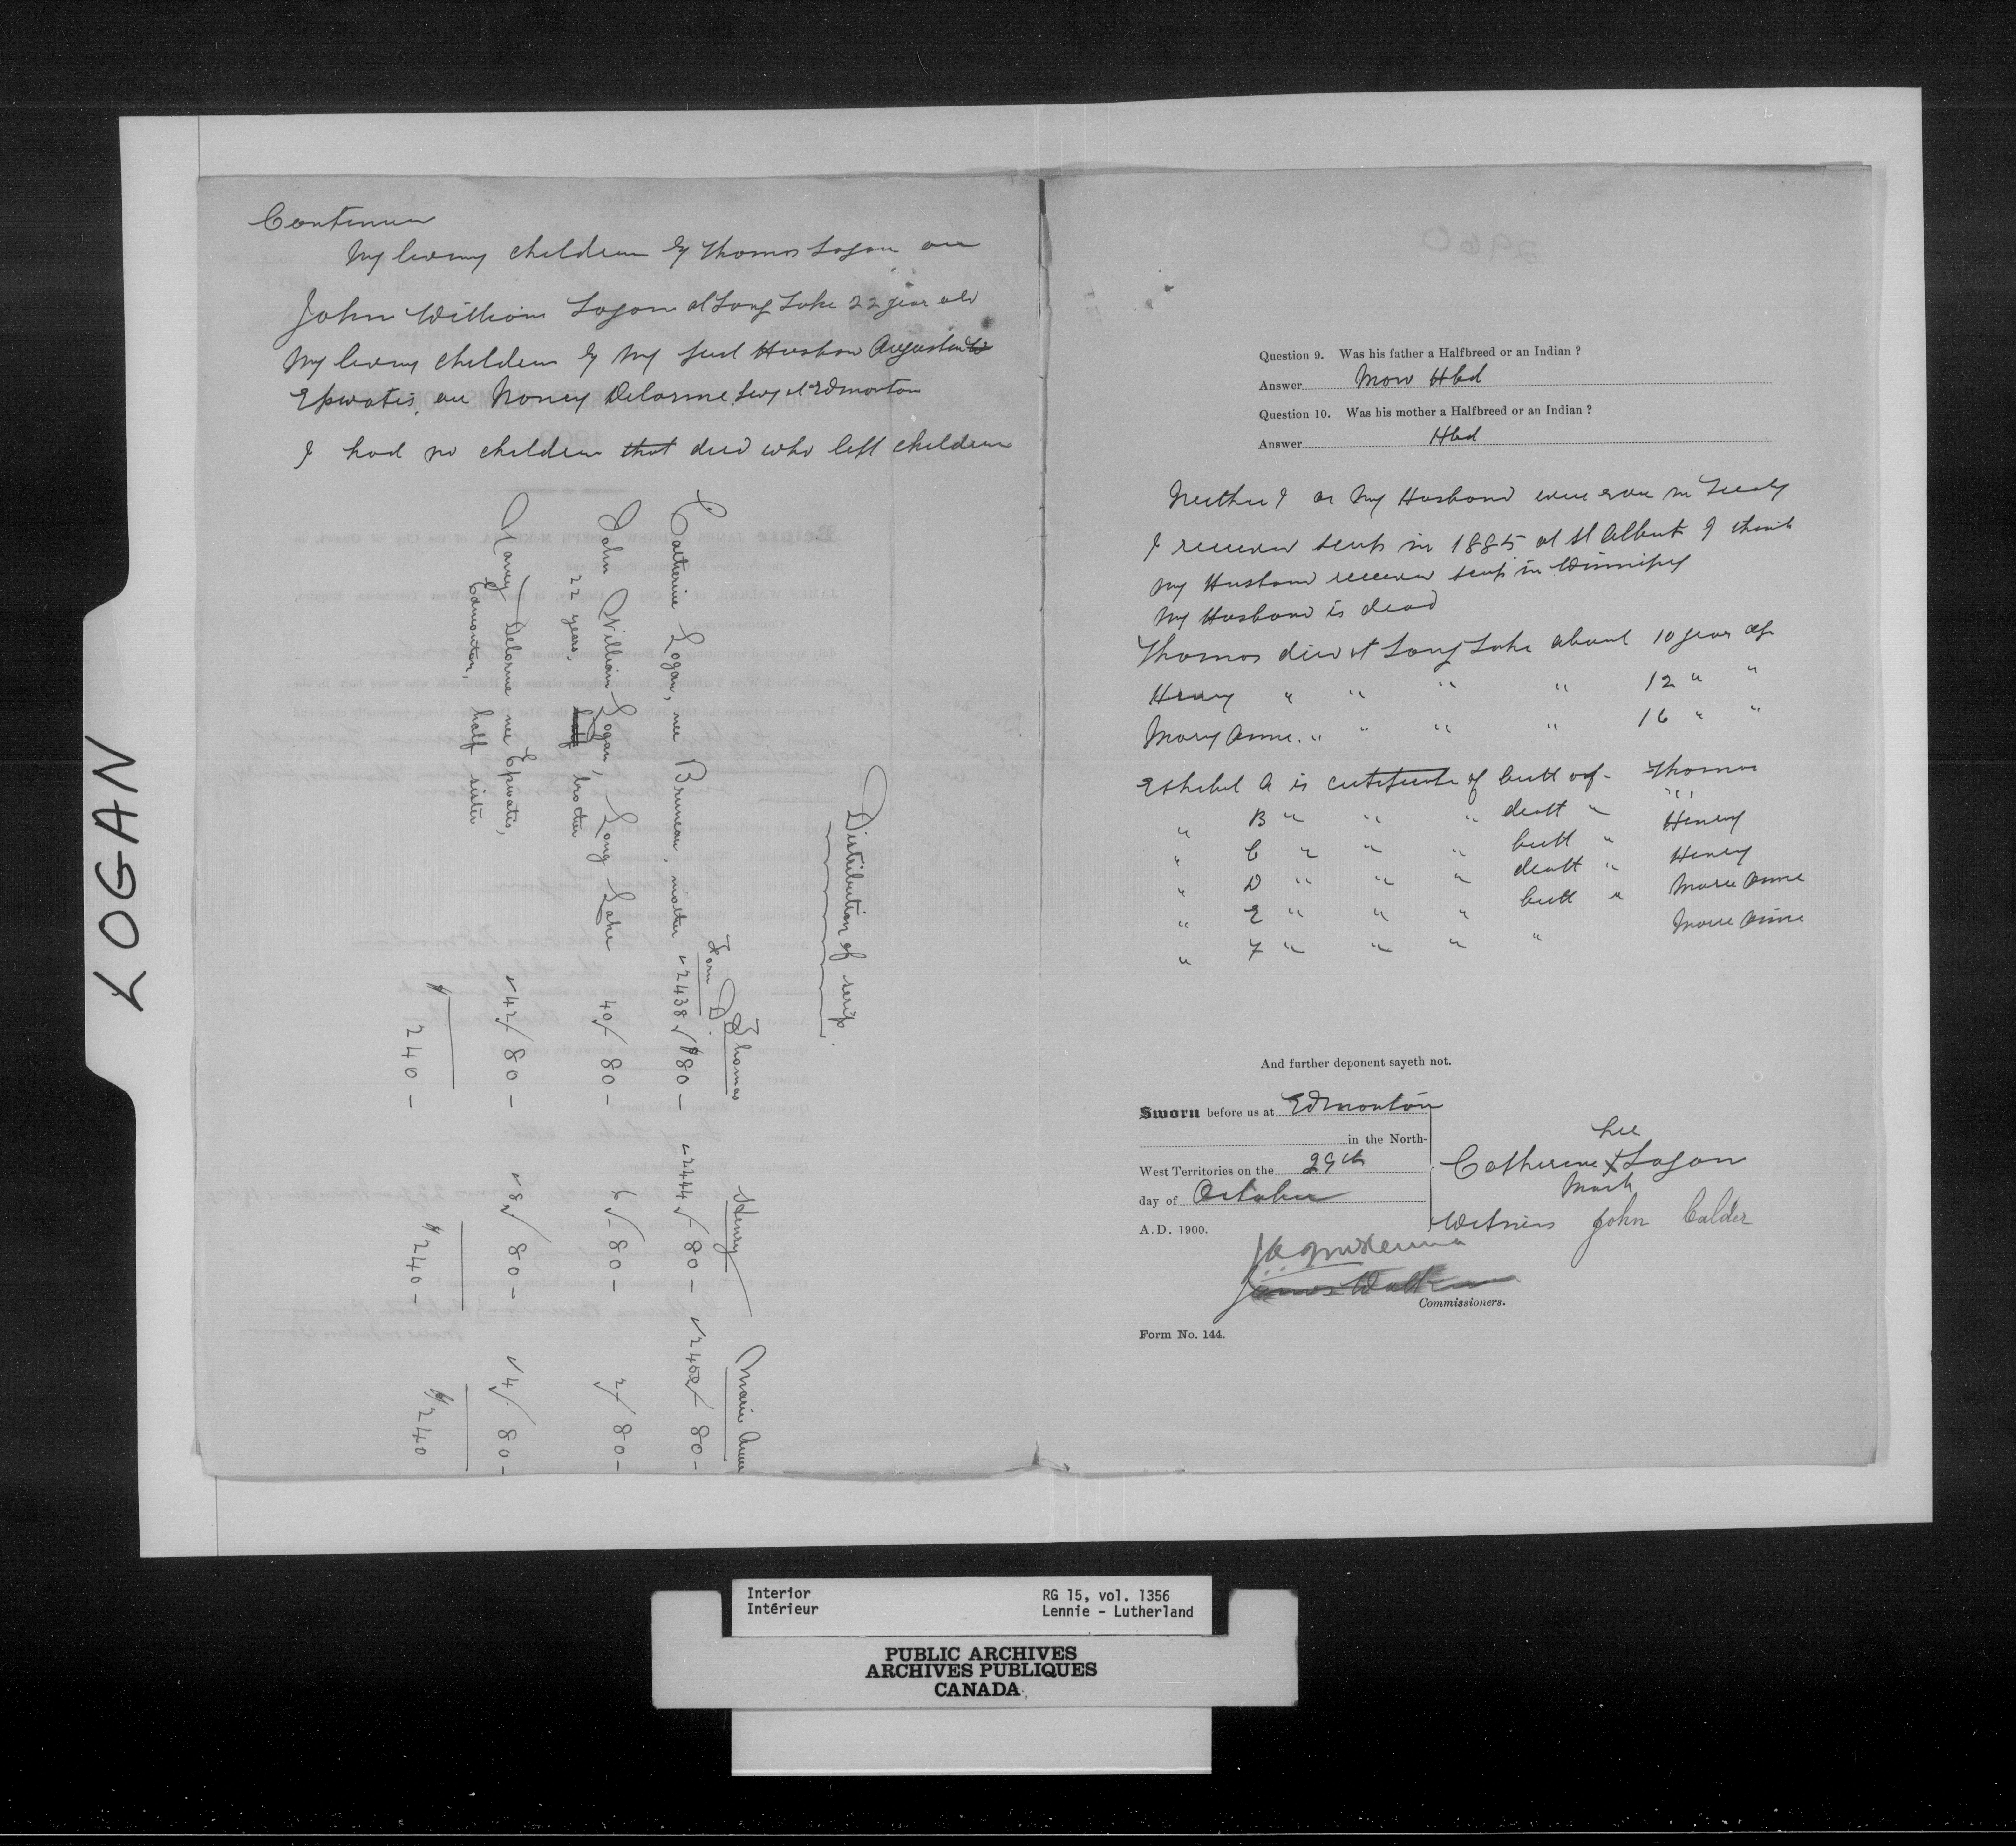 LOGAN
Continues
My living children by Thomas Logan are
John William Logan at Long Lake 22 year old
My living children by my first Husban Augustin
Epwatis, are Noncy Delorme living at Edmonton
I had no children that died who left children
Distribution of scrip.
Thomas Henry Marie Anne
Form D.
Catherine Logan, nee Bruneau, mother 2438 $80 - 2444 80 - 2450 80 -
John William Logan, Long Lake 40 80 - 6 80 - 2 80 -
22 years, half brother
Nancy Delorme nee Epwatis, 42 80 - 8 80 - 4 80 -
Edmonton, half sister
$ 240 - $ 240 - $ 240
2960
Question 9. Was his father a Halfbreed or an Indian ?
Answer Hbd
Question 10. Was his mother a Halfbreed or an Indian ?
Answer Hbd
Neither I or My Husband were ever in Treaty
I received scrip in 1885 at St Albert I think
my Husband received scrip in Winnipeg
My Husband is dead
Thomas died at Long Lake about 10 years ago
Henry " " " " 12 " "
Mary Anne. " " " " 16 " "
Exhibit A is certificate of birth of Thomas
" B " " " death " " "
" C " " " birth " Henry
" D " " " death " Henry
" E " " " birth " Marie Anne
" F " " " " Marie Anne
And further deponent sayeth not.
Sworn before us at Edmonton
in the North-
West Territories on the 29th
day of October
A.D. 1900.
her
Catherine X Logan
Mark
Witness John Calder
J A McKenna
James Walker
Commissioners.
Form No. 144.
Interior
Intérieur
RG 15, vol. 1356
Lennie - Lutherland
PUBLIC ARCHIVES
ARCHIVES PUBLIQUES
CANADA